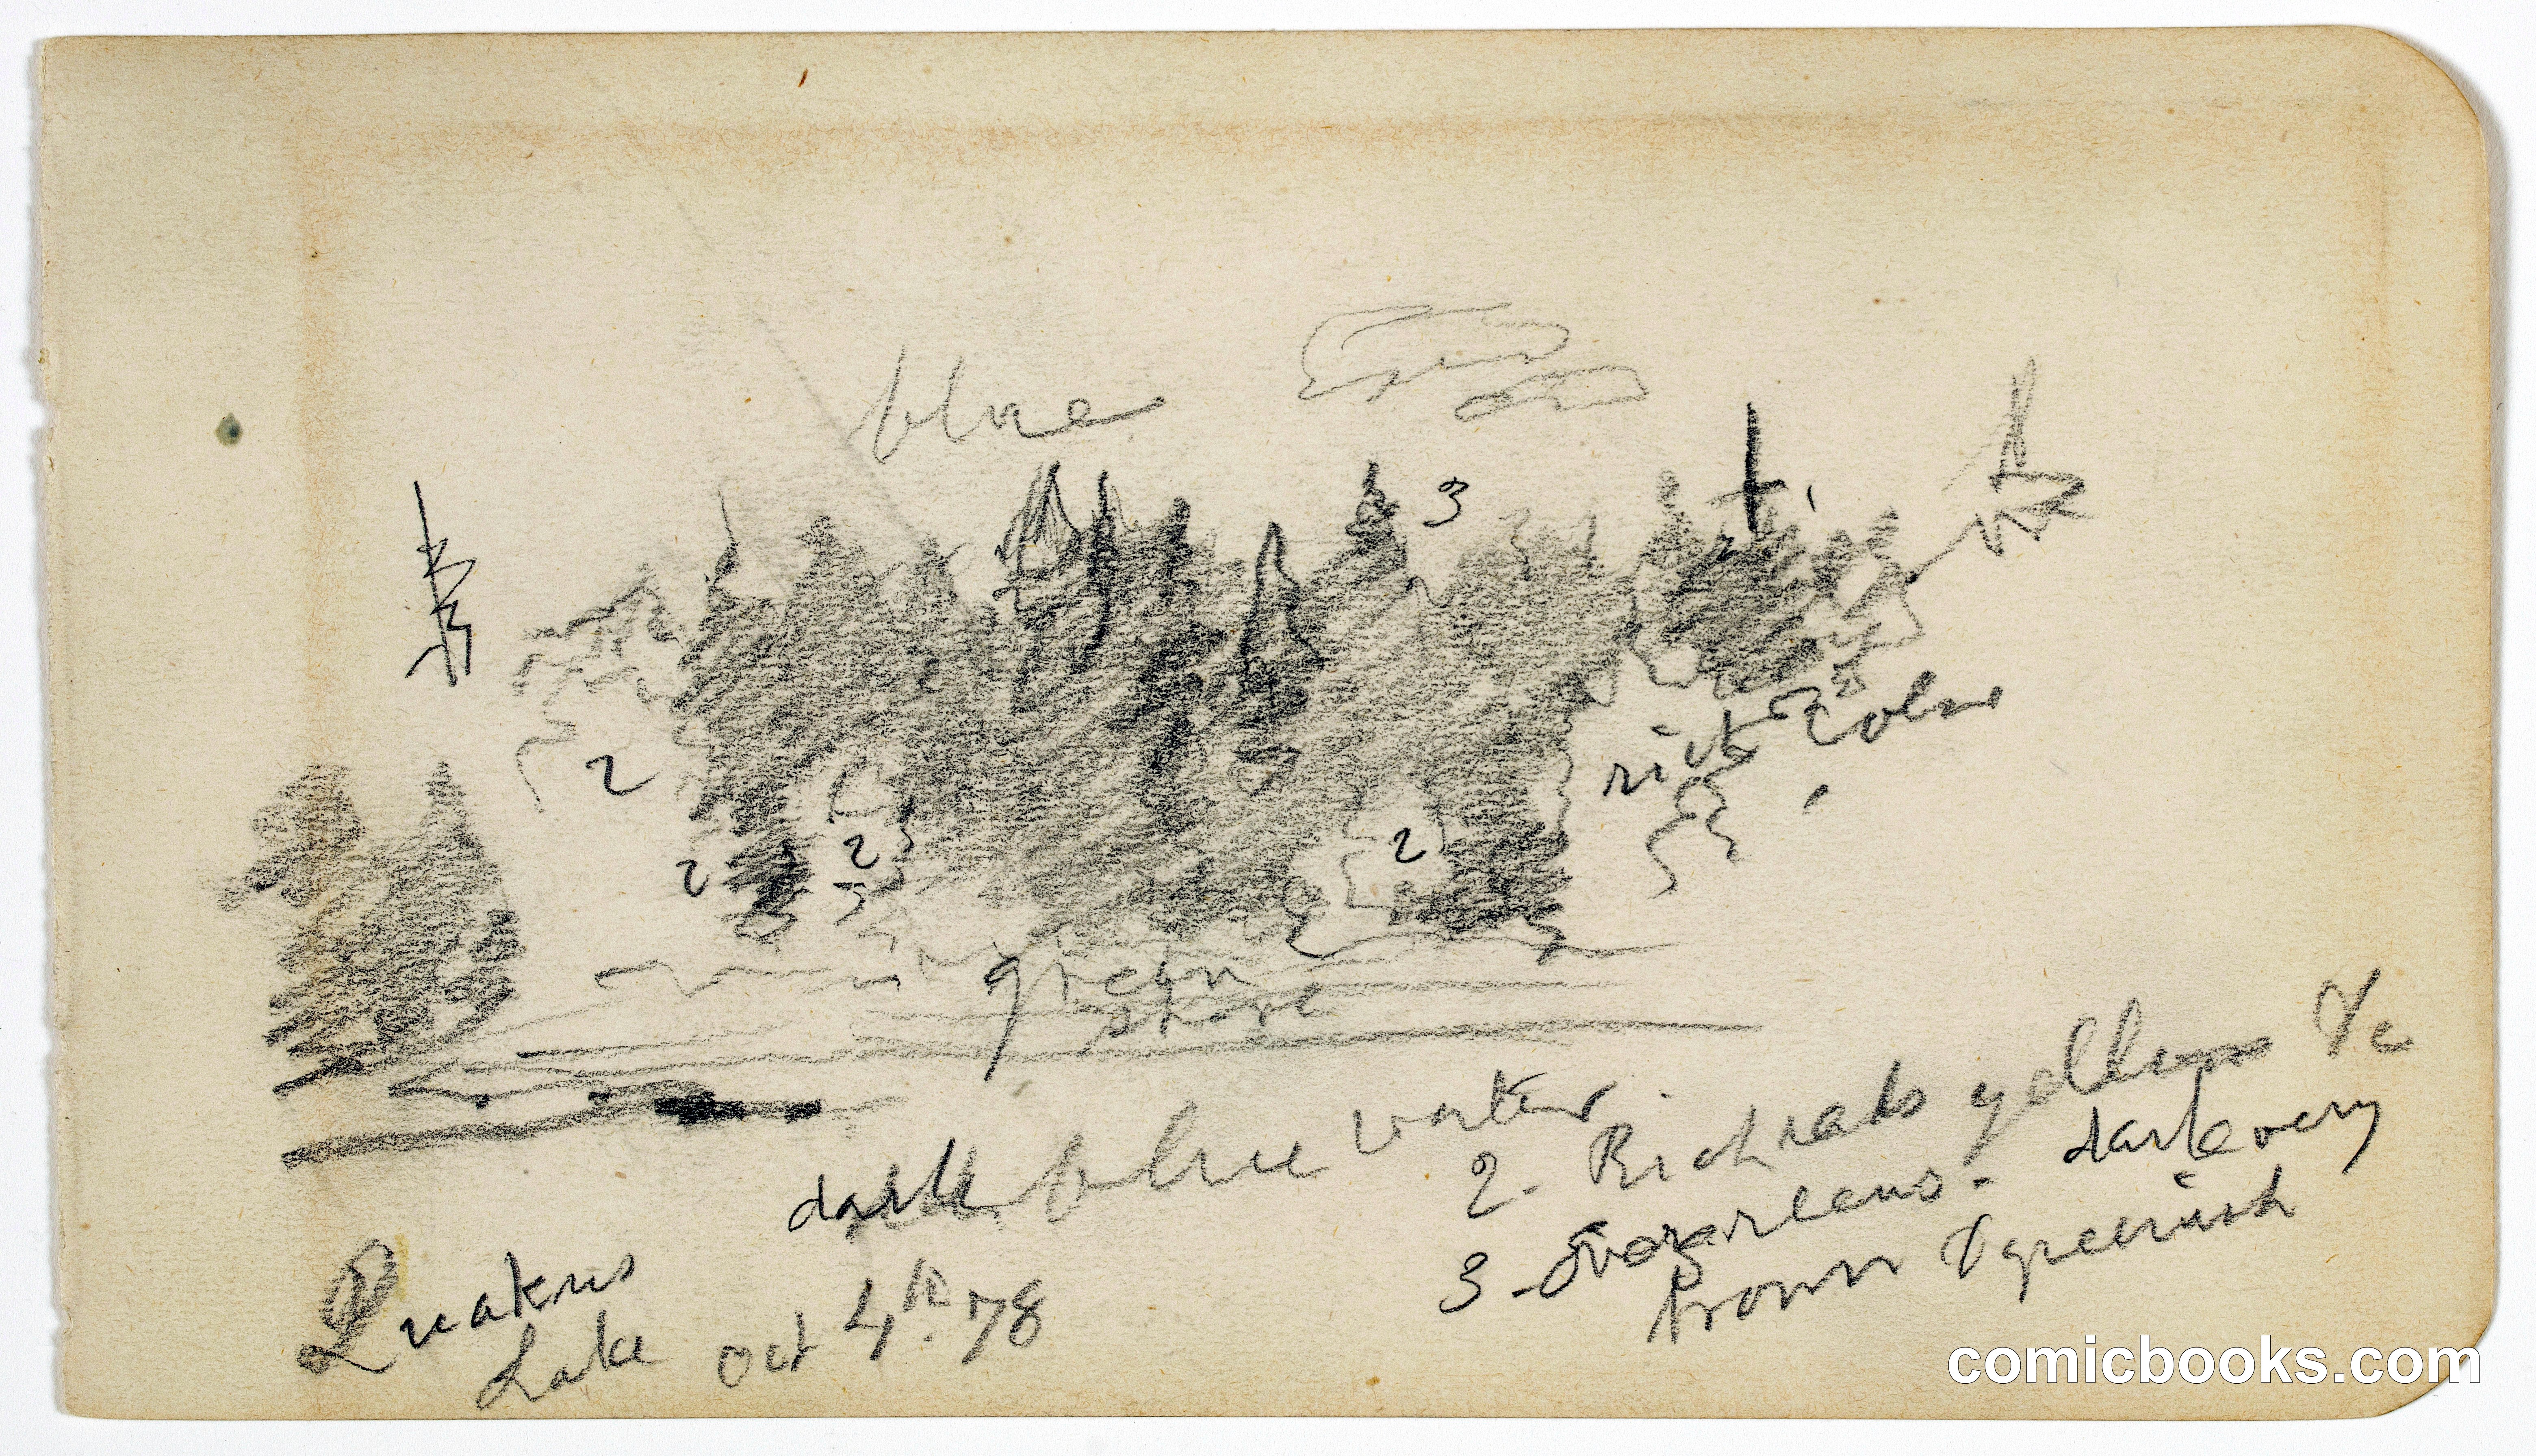 blue
3
2
rich Color
2
2
2
green
shore
dark blue water
2. Rich reds yellows &c
3 - Evergreens - dark very
brown & greenish
Quakers
Lake Oct 4th. 78
comicbooks.com